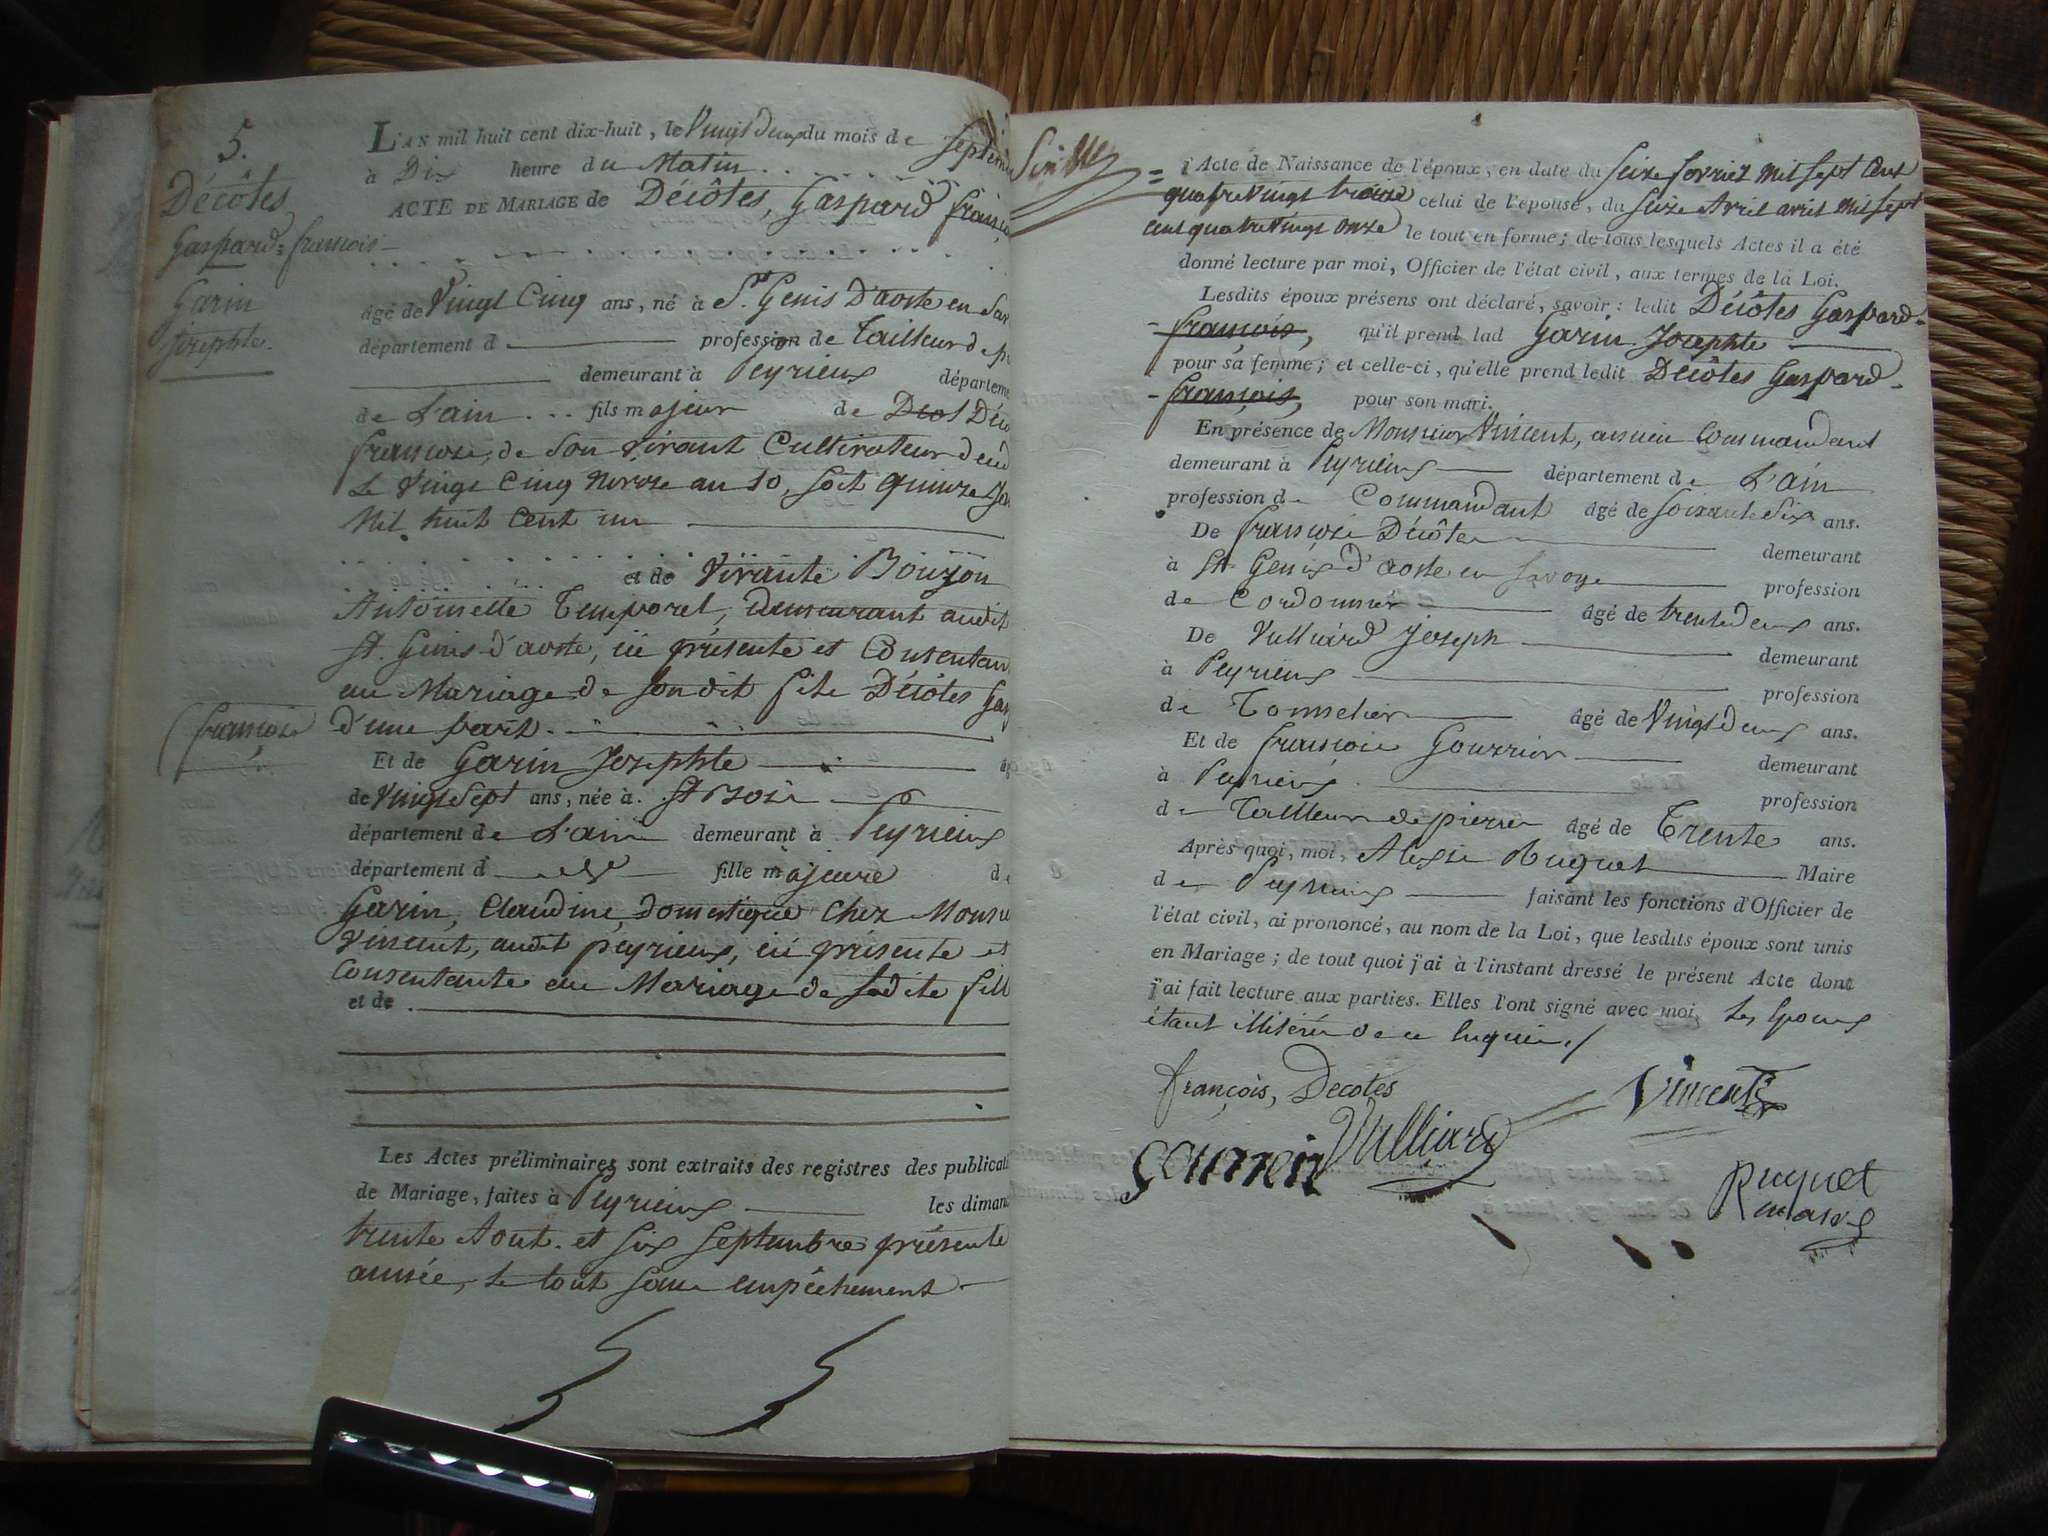 5.
Décôtes
Gaspard=françois
Garin
Josephte.
L'AN mil huit cent dix-huit, le Vingt Deux du mois de Septem
à Dix heure du Matin
ACTE DE MARIAGE de Décôtes, Gaspard françois
âgé de Vingt Cinq ans, né à St. Genis D'aoste en Sav
département d profession de Tailleur de pi
demeurant à Peyrieux départeme
de L'ain fils majeur de Decot Déco
françois, de Son Vivant Cultivateur deud
Le Vingt Cinq Nivose an 10, soit quinze Jan
Mil huit Cent un
et de Vivante Bouzon
Antoinette Temporel, demeurant audit
St. Genis d'aoste, ici présente et Consentan
au Mariage de Son dit fils Décôtes Gas
(françois d'une part.
Et de Garin Josephte âg
de Vingt Sept ans, née à St Bois
département de L'ain demeurant à Peyrieux
département d fille majeure de
Garin, Claudine, domestique Chez Monsie
Vincent, audit peyrieux, ici présente et
Consentante au Mariage de Sadite fill
et de
Les Actes préliminaires sont extraits des registres des publicati
de Mariage, faites à Peyrieux les diman
trente Aout et Six Septembre présente
année, Le tout Sans empêchement
l'Acte de Naissance de l'époux, en date du Seize fevrier Mil Sept Cent
quatre Vingt treize celui de l'épouse, du Seize Avril avril Mil Sept
Cent quatre Vingt Onze le tout en forme; de tous lesquels Actes il a été
donné lecture par moi, Officier de l'état civil, aux termes de la Loi.
Lesdits époux présens ont déclaré, savoir : ledit Décôtes Gaspard-
-françois, qu'il prend lad Garin Josephte
pour sa femme; et celle-ci, qu'elle prend ledit Décôtes Gaspard-
-françois, pour son mari.
En présence de Monsieur Vincent, ancien Commandant
demeurant à Peyrieux département de L'ain
profession de Commandant âgé de Soixante Six ans.
De françois Décôtes demeurant
à St Genix d'aoste en Savoye profession
de Cordonnier âgé de trente deux ans.
De Vulliard Joseph demeurant
à Peyrieux profession
de Tonnelier âgé de Vingt Deux ans.
Et de françois Gourrion demeurant
à Peyrieux profession
de Tailleur de pierre âgé de Trente ans.
Après quoi, moi, Alexis Ruquet Maire
de Peyrieux faisant les fonctions d'Officier de
l'état civil, ai prononcé, au nom de la Loi, que lesdits époux sont unis
en Mariage; de tout quoi j'ai à l'instant dressé le présent Acte dont
j'ai fait lecture aux parties. Elles l'ont signé avec moi, Les Epoux
étant illitérés de ce Enquis./
françois, Decotes
Vincent
Vulliard
Ruquet
maire